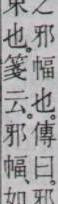 之邪幅也。傳曰。邪
束也。箋云。邪幅、如